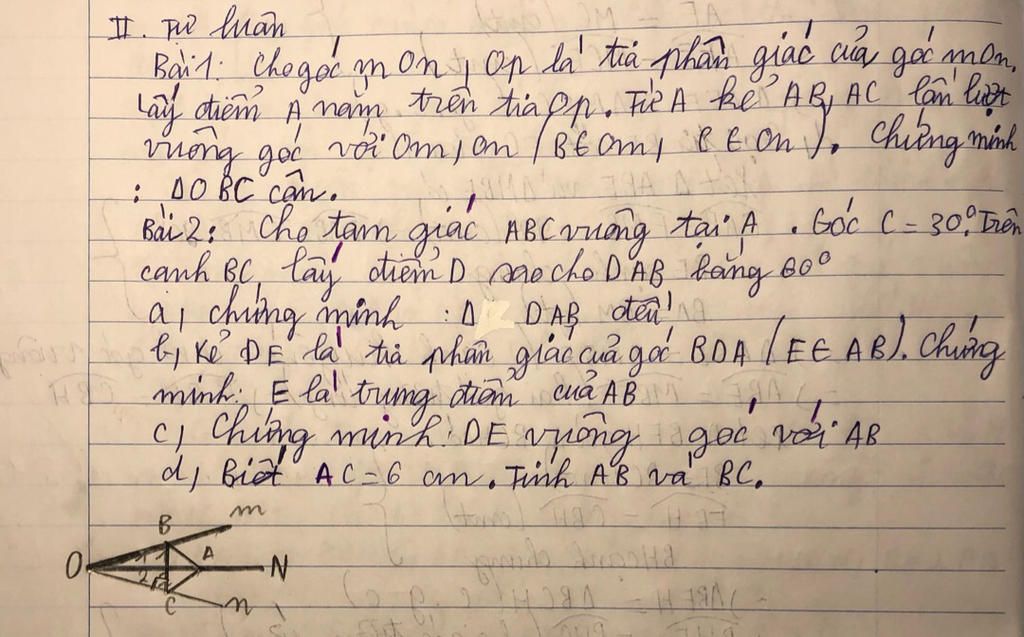 II. Tự luận
Bài 1: Cho góc mOn, Op là tia phân giác của góc mOn.
Lấy điểm A nằm trên tia Op. Từ A kẻ AB, AC lần lượt
vuông góc với Om, On (B∈Om, C∈On). Chứng minh
: ΔOBC cân.
Bài 2: Cho tam giác ABC vuông tại A. Góc C = 30°. Trên
cạnh BC lấy điểm D sao cho DAB bằng 60°
a, chứng minh : Δ DAB đều
b, Kẻ DE là tia phân giác của góc BDA (E∈AB). Chứng
minh: E là trung điểm của AB
c, Chứng minh: DE vuông góc với AB
d, Biết AC = 6 cm. Tính AB và BC.
m
B
O 1 2 A N
C n